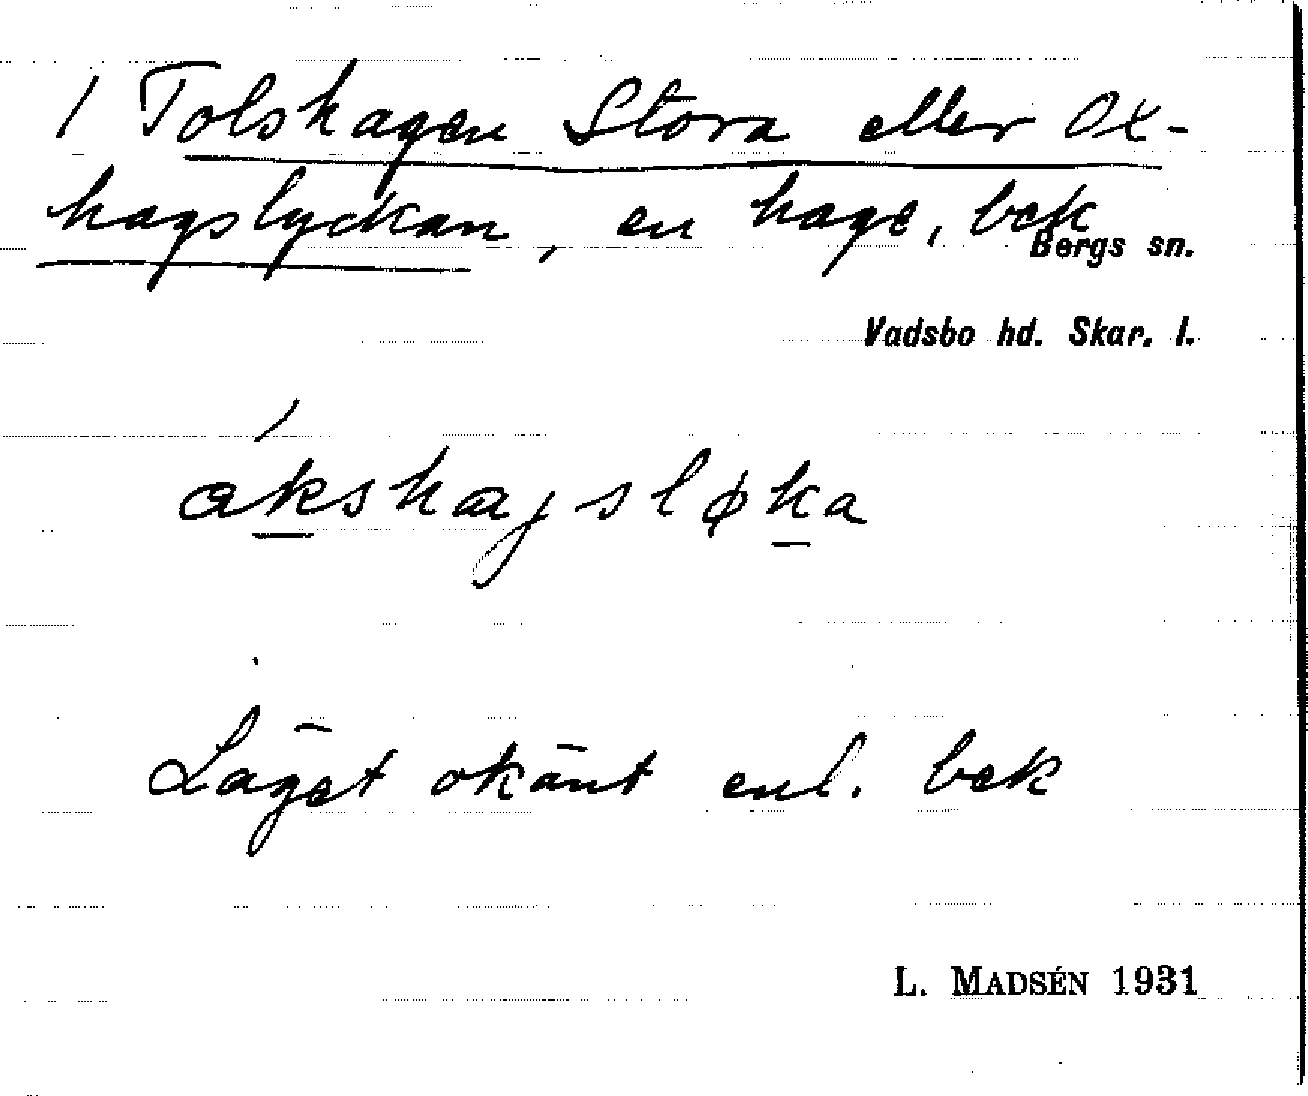 / Tolshagen Stora eller Ox-
hagslyckan, en hage, bek
Bergs sn.
Vadsbo hd. Skar. l.
ákshagsløka
Läget okänt enl. bek
L. MADSÉN 1931